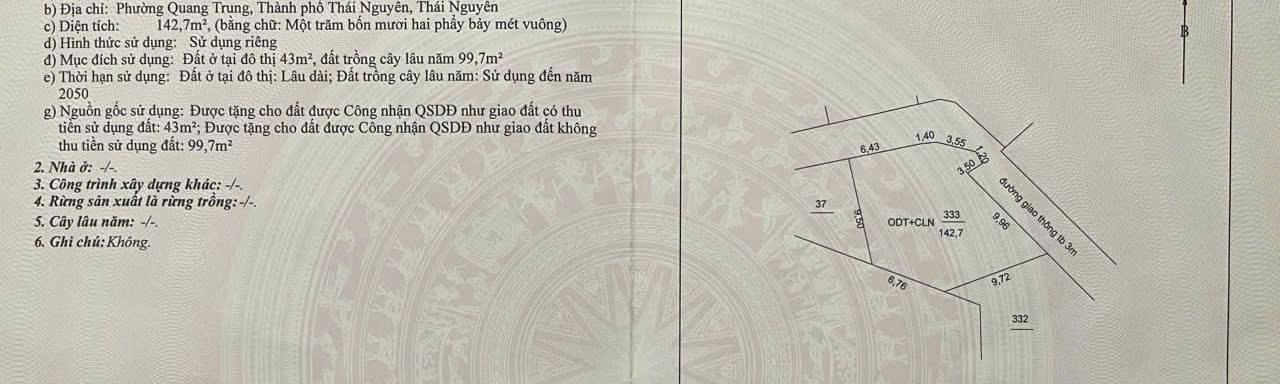 b) Địa chỉ: Phường Quang Trung, Thành phố Thái Nguyên, Thái Nguyên
c) Diện tích: 142,7m², (bằng chữ: Một trăm bốn mươi hai phẩy bảy mét vuông)
d) Hình thức sử dụng: Sử dụng riêng
đ) Mục đích sử dụng: Đất ở tại đô thị 43m², đất trồng cây lâu năm 99,7m²
e) Thời hạn sử dụng: Đất ở tại đô thị: Lâu dài; Đất trồng cây lâu năm: Sử dụng đến năm
2050
g) Nguồn gốc sử dụng: Được tặng cho đất được Công nhận QSDĐ như giao đất có thu
tiền sử dụng đất: 43m²; Được tặng cho đất được Công nhận QSDĐ như giao đất không
thu tiền sử dụng đất: 99,7m²
2. Nhà ở: -/-.
3. Công trình xây dựng khác: -/-.
4. Rừng sản xuất là rừng trồng: -/-.
5. Cây lâu năm: -/-.
6. Ghi chú: Không.
B
6,43
1,40
3,55
1,20
3,50
đường giao thông lb 3m
37
9,50
ODT+CLN
333
142,7
9,96
6,76
9,72
332